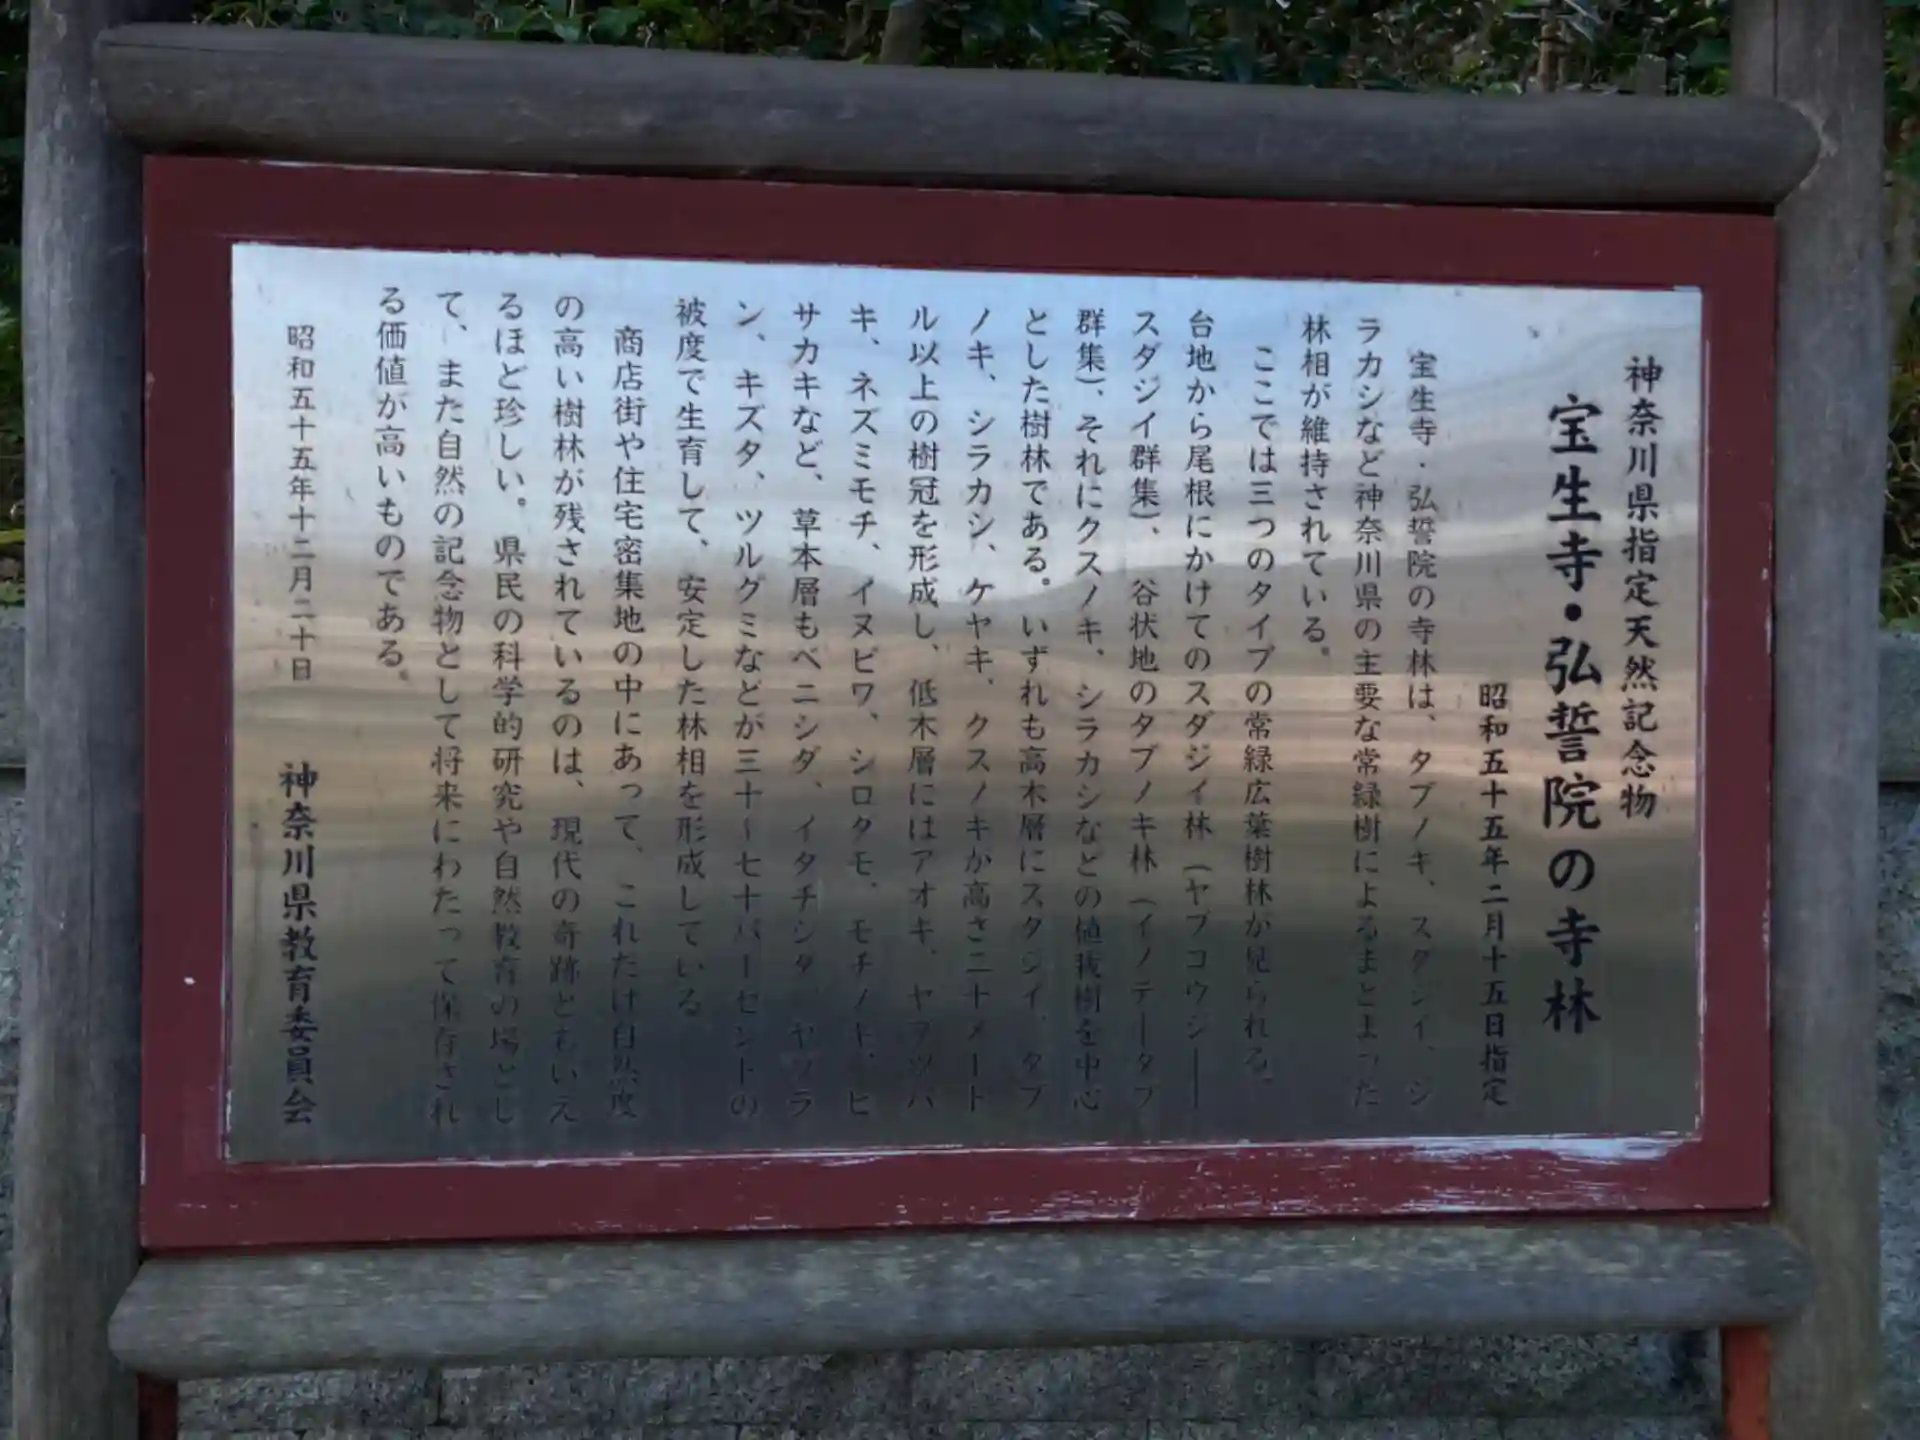 神奈川県指定天然記念物
宝生寺・弘誓院の寺林
昭和五十五年二月十五日指定
宝生寺・弘誓院の寺林は、タブノキ、スダジイ、シ
ラカシなど神奈川県の主要な常緑樹によるまとまった
林相が維持されている。
ここでは三つのタイプの常緑広葉樹林が見られる。
台地から尾根にかけてのスダジイ林（ヤブコウジ―
スダジイ群集）、谷状地のタブノキ林（イノデ―タブ
群集）、それにクスノキ、シラカシなどの植栽樹を中心
とした樹林である。いずれも高木層にスダジイ、タブ
ノキ、シラカシ、ケヤキ、クスノキが高さ二十メート
ル以上の樹冠を形成し、低木層にはアオキ、ヤブツバ
キ、ネズミモチ、イヌビワ、シロダモ、モチノキ、ヒ
サカキなど、草本層もベニシダ、イタチシダ、ヤブラ
ン、キズタ、ツルグミなどが三十～七十パーセントの
被度で生育して、安定した林相を形成している
商店街や住宅密集地の中にあって、これだけ自然度
の高い樹林が残されているのは、現代の奇跡ともいえ
るほど珍しい。県民の科学的研究や自然教育の場とし
て、また自然の記念物として将来にわたって保存され
る価値が高いものである。
昭和五十五年十二月二十日
神奈川県教育委員会